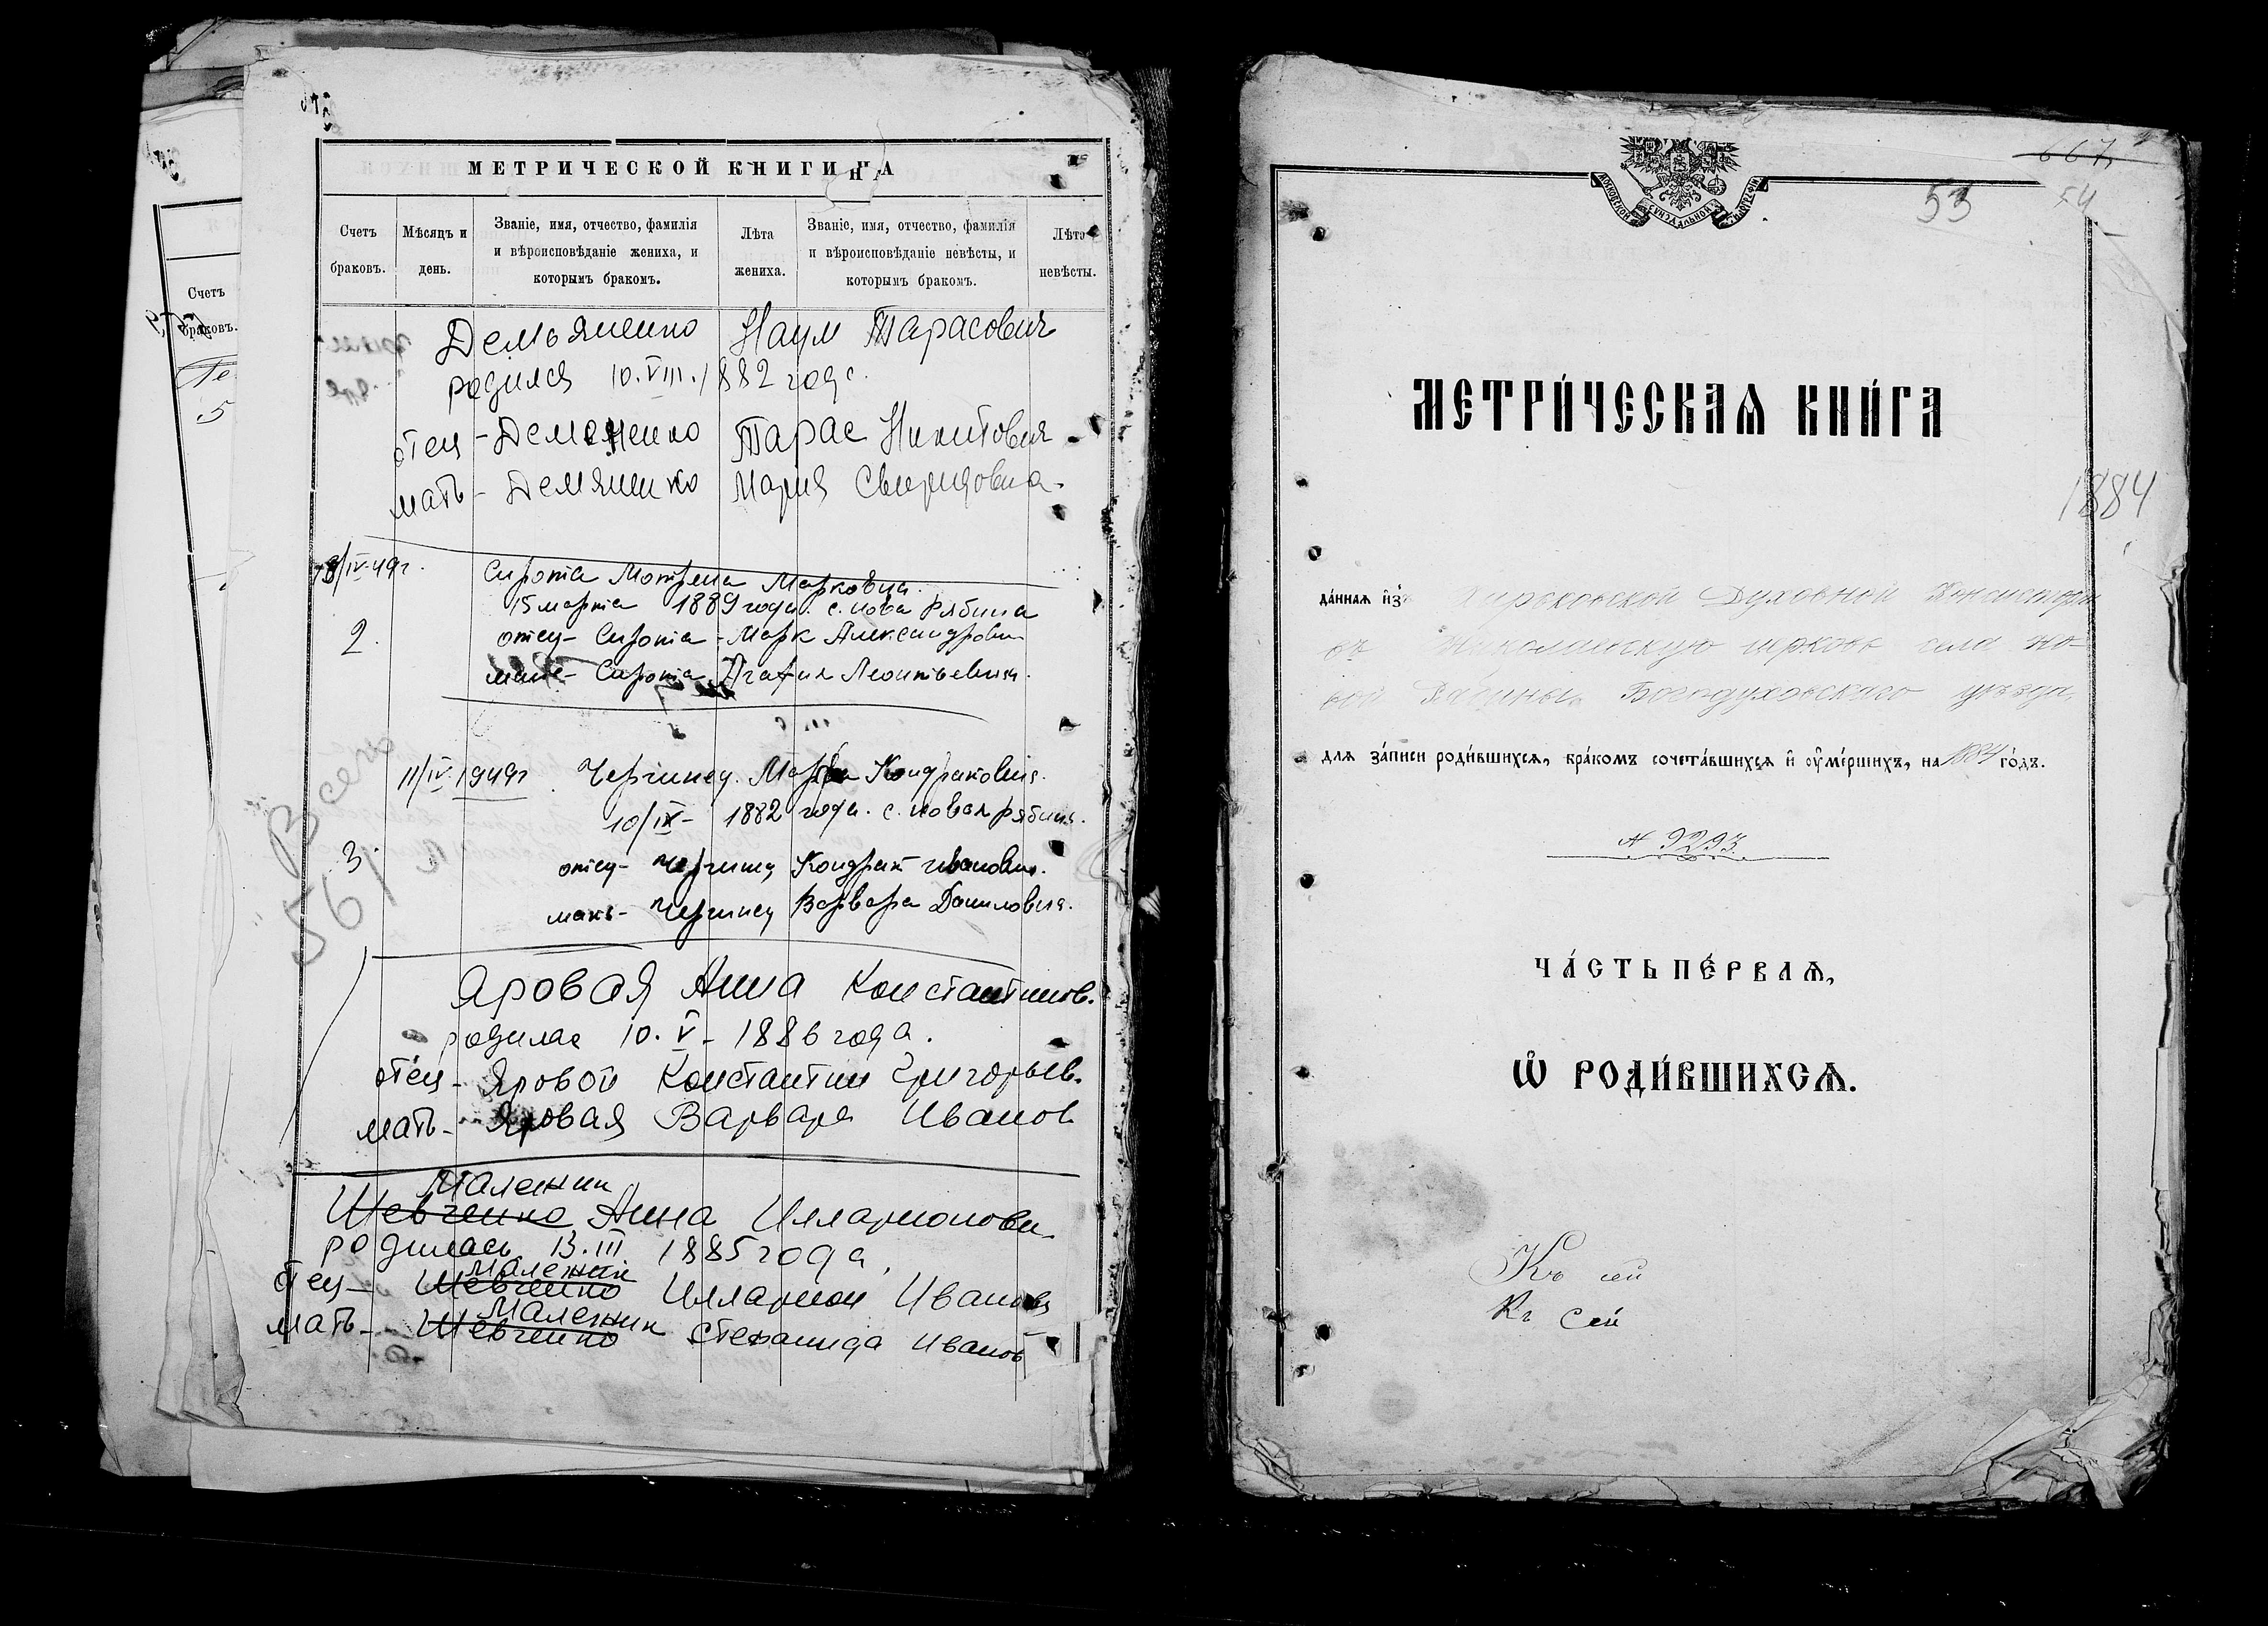 МЕТРИЧЕСКОЙ КНИГИ НА
Счетъ браковъ.
Мѣсяцъ и день.
Званіе, имя, отчество, фамилія и вѣроисповѣданіе жениха, и которымъ бракомъ.
Лѣта жениха.
Званіе, имя, отчество, фамилія и вѣроисповѣданіе невѣсты, и которымъ бракомъ.
Лѣта невѣсты.
Счетъ
браковъ.
5
Демьяненко Наум Тарасович
родился 10.VIII.1882 года.
отец - Демяненко Тарас Никитович
мать - Демяненко Мария Свиридовна.
/IV-49г.
Сирота Мотрена Марковна.
15 марта 1889 года. с. нова рябина
2.
отец - Сирота - Марк Александрович
мать - Сирота Агафия Леонтьевна.
11/IV 1949г. Чергинец. Марфа Кондратовна.
10/IX - 1882 года. с. новая рябина.
3.
отец - Чергинец Кондрат иванович.
мать - Чергинец Варвара Даниловна.
Всего
561
Яровая Анна Константинов.
родилас 10.V - 1886 года.
отец - Яровой Константин Григорьев.
мать - Яровая Варвара Иванов
Маленик
Шевченко Анна Илларионовн.
родилась 13.III 1885 года.
Маленик
отец - Шевченко Илларион Иванов
Маленик
мать - Шевченко Степанида Иванов
667
53 54
МЕТРИ́ЧЕСКАѦ КНИ́ГА
1884
да́ннаѧ и҆зъ Харьковской Духовной Консисторіи
въ Николаевскую церковь села Но-
вой Рябины Богодуховскаго уѣзда,
для за́писи роди́вшихсѧ, бра́комъ сочета́вшихсѧ и҆ ᲂу҆ме́ршихъ, на 1884 го́дъ.
№ 9293.
ЧА́СТЬ ПЕ́РВАѦ,
Ѡ҆ РОДИ́ВШИХСѦ.
Къ сей
Къ сей